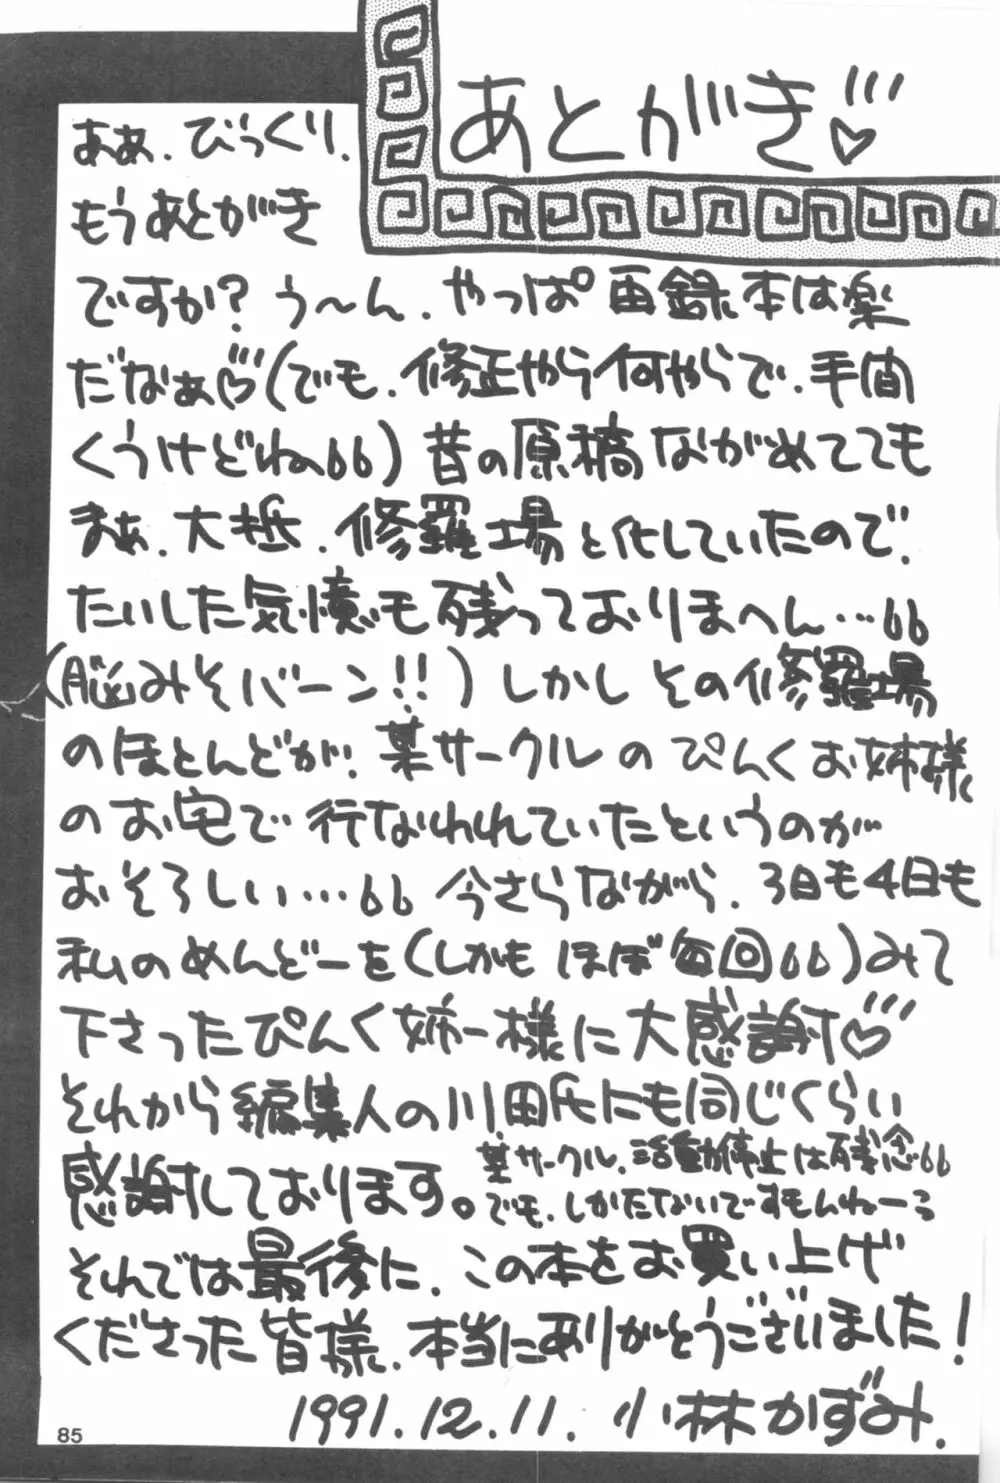 あとがき♡
ああ、びっくり、
もうあとがき
ですか?う〜ん、やっぱ再録本は楽
だなあ♡(でも、修正やら何やらで、手間
くうけどね。)昔の原稿ながめてても
まぁ、大抵、修羅場と化していたので、
たいした気憶も残っておりまへん…
(脳みそバーン!!)しかしその修羅場
のほとんどが、某サークルのぴんくお姉様
のお宅で行なわれていたというのが…
おそろしい…今さらながら、3日も4日も
私のめんどーを(しかもほぼ毎回)みて
下さったぴんく姉様に大感謝♡
それから編集人の川田氏にも同じくらい
感謝しております。
某サークル、活動停止は残念
でも、しかたないですもんねーう
それでは最後に、この本をお買い上げ
くださった皆様、本当にありがとうございました!
1991.12.11. 小林かずみ.
85